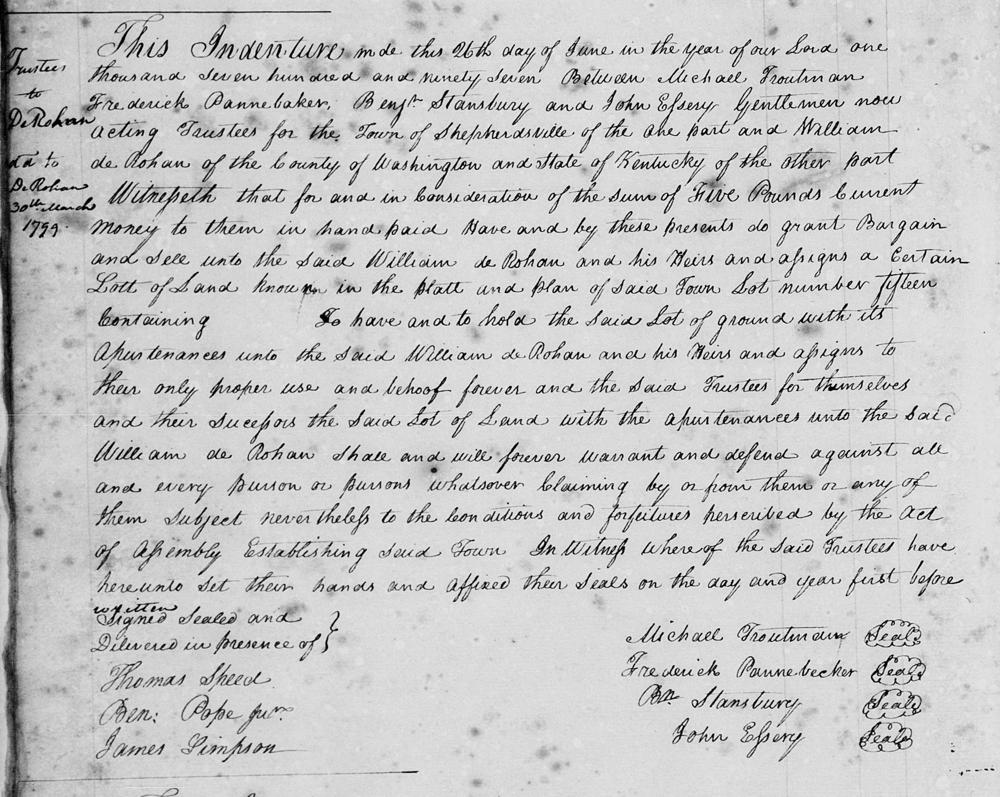 Trustees
to
DeRohan
dd to
DeRohan
30th March
1799.
This Indenture mde this 26th day of June in the year of our Lord one
thousand seven hundred and ninety seven Between Michael Troutman
Frederick Pannebaker, Benjn Stansbury and John Essery Gentlemen now
acting Trustees for the Town of Shepherdsville of the one part and William
de Rohan of the County of Washington and State of Kentucky of the other part
Witnesseth that for and in Consideration of the sum of Five Pounds Current
money to them in hand paid Have and by these presents do grant Bargain
and sell unto the said William de Rohan and his Heirs and assigns a Certain
Lott of Land known in the platt and plan of said Town Lot number fifteen
Containing To have and to hold the said Lot of ground with its
Apurtenances unto the said William de Rohan and his Heirs and assigns to
their only proper use and behoof forever and the said Trustees for themselves
and their sucessors the said Lot of Land with the apurtenances unto the said
William de Rohan Shall and will forever warrant and defend against all
and every purson or pursons whatsover Claiming by or from them or any of
them subject nevertheless to the Conditions and forfeitures perscribed by the Act
of Assembly Establishing said Town In Witness whereof the said Trustees have
hereunto set their hands and affixed their seals on the day and year first before
written
Signed Sealed and
Delivered in presence of }
Thomas Speed
Ben: Pope junr.
James Simpson
Michael Troutman Seal
Frederick Pannebecker Seal
Bn Stansbury Seal
John Essery Seal